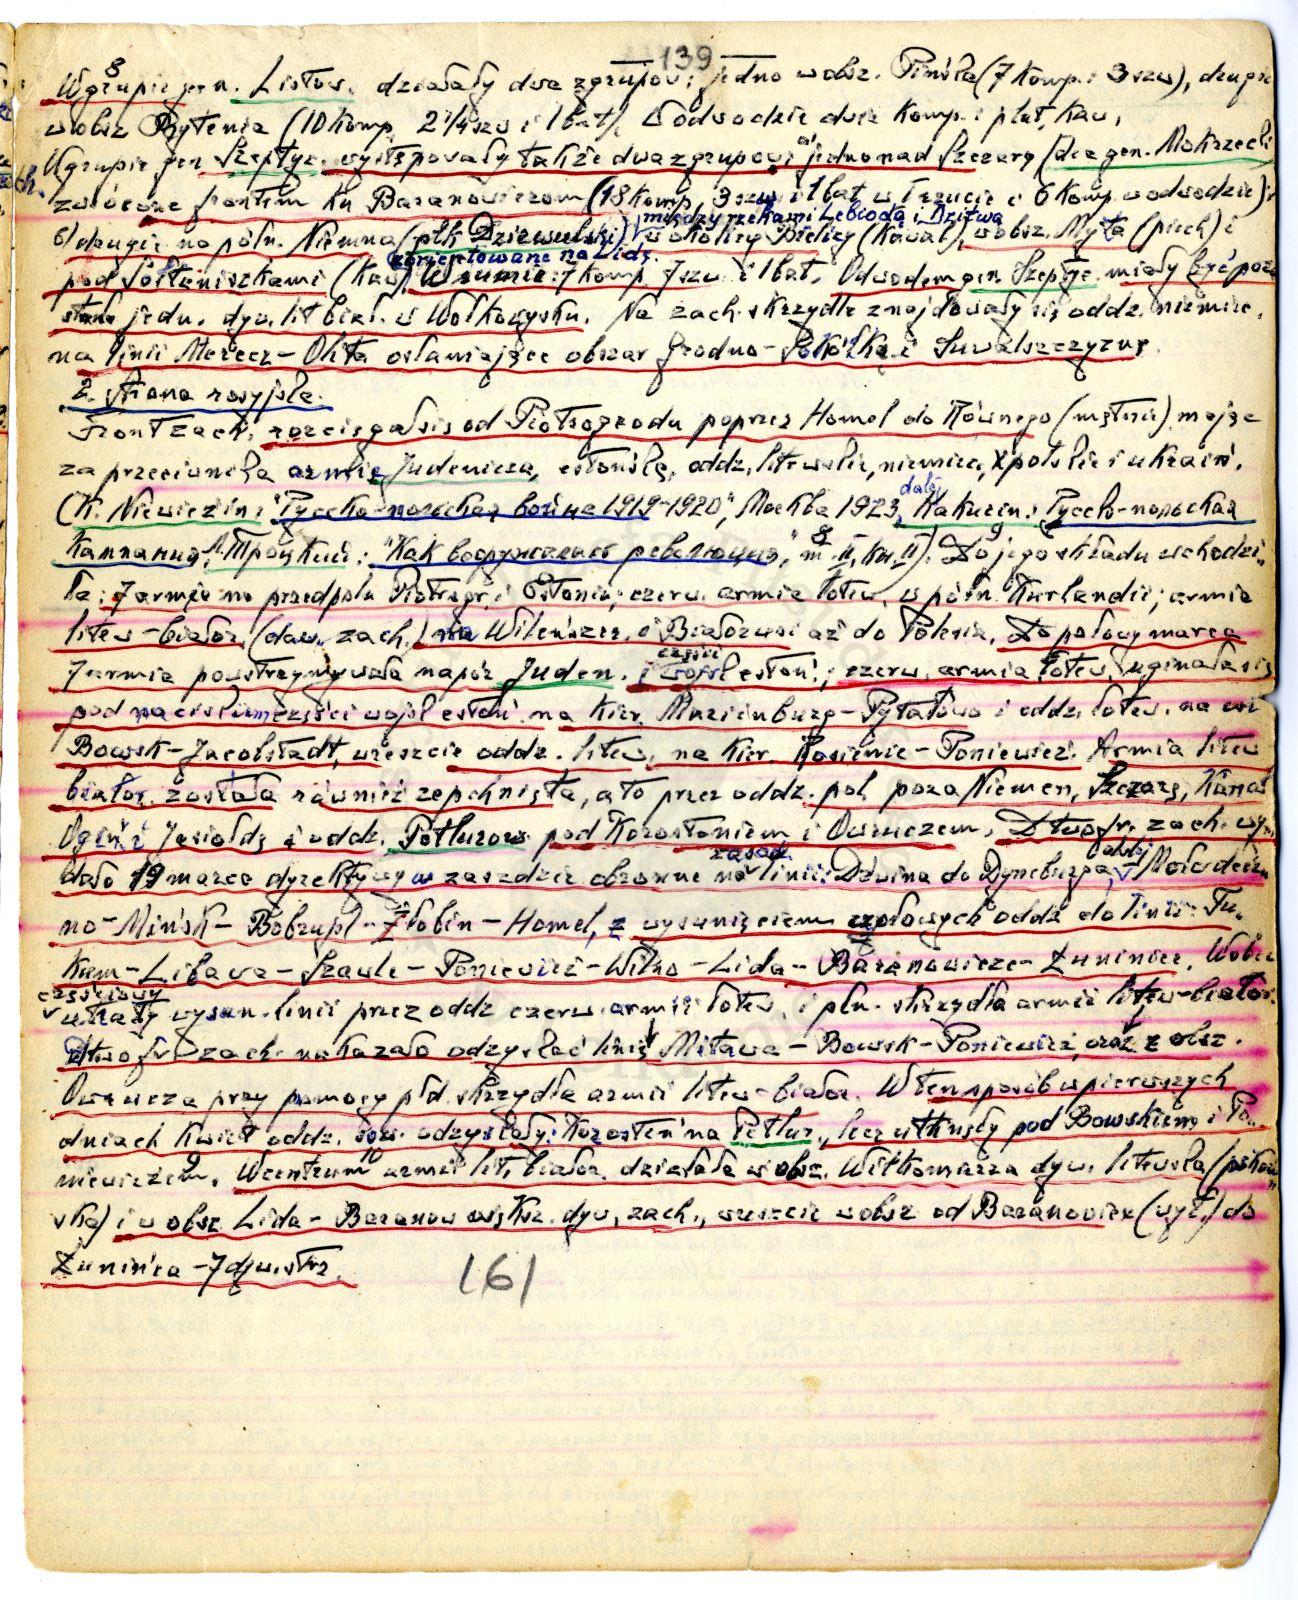 139
W grupie gen. Listow. działały dwa zgrupow: jedno w obsz. Pińska (7 komp. i 3 szw), drugie
w obsz Bytenia (10 komp, 2 1/4 szw i 1 bat). W odwodzie dwie komp. i plut. kaw.
W grupie gen Szeptyc. występowały także dwa zgrupow: a) jedno nad Szczarą (dca gen. Mokrzecki
zwrócone frontem ku Baranowiczom (18 komp, 3 szw i 1 bat w I rzucie i 6 komp w odwodzie);
między rzekami Lebiodą i Dzitwą
b) drugie na półn. Niemna (płk Dziewulski) w okolicy Bielicy (kawal), w obsz. Myta (piech) i
zorientowane na Lidę.
pod Sołtaniszkami (kaw). W sumie: 7 komp, 7 szw. i 1 bat. Odwodem gen. Szeptyc miały być pozo
stałe jedn. dyw. lit biał. w Wołkowysku. Na zach. skrzydle znajdowały się oddz. niemiec.
na linii Merecz - Olita osłaniające obszar Grodno - Sokółka i Suwalszczyznę.
2. Strona rosyjska.
Front zach. rozciągał się od Piotrogrodu poprzez Homel do Równego (mętne) mając
za przeciwnika armię Judenicza, estońską, oddz. litewskie, niemiec, polskie i ukraiń.
dalej
(K. Niewieżin: "Русско-польская война 1919-1920", Москва 1923, Kakurin: Русско-польская
кампания; Л. Троцкий: "Как вооружалась революция," т. II, кн. II). Do jego składu wchodzi..
ła: 7 armia na przedpolu Piotrogr. i Estonii; czerw. armia łotew. w półn. Kurlandii; armia
litew-białor. (daw. zach.) na Wileńszcz. i Białorusi aż do Polesia. Do połowy marca
części
7 armia powstrzymywała napór Juden. i wojsk estoń.; czerw. armia łotew. uginała się
pod naciskiem części wojsk estoń. na kier. Marienburg - Pytałowo i oddz. łotew. na
Bowsk - Jacobstadt, wreszcie oddz. litew. na kier. Rosienie - Poniewież. Armia litew
białor. została również zepchnięta, a to przez oddz. pol. poza Niemen, Szczarę, Kanał
Ogiń. i Jasiołdę i oddz. Petlurow. pod Korosteniem i Owruczem. Dtwo fr. zach. wy..
zasad. dalej
dało 19 marca dyrektywy w zasadzie obronne na linii: Dźwina do Dyneburga, Mołodecz
no - Mińsk - Bobrujsk - Żłobin - Homel, z wysunięciem czołowych oddz do linii: Tu..
kum - Libava - Szawle - Poniewież - Wilno - Lida - Baranowicze - Łuniniec. Wobec
częściowej
utraty wysun. linii przez oddz czerw. armii łotew. i płn. skrzydła armii litew-białor.
Dtwo fr. zach. nakazało odzyskać linię Mitawa - Bowsk - Poniewież, oraz z obsz.
Owrucza przy pomocy płd. skrzydła armii litew-białor. W ten sposób w pierwszych
dniach kwiet oddz. sow. odzyskały: Korosteń na Petlur., lecz utknęły pod Bowskiem i Po..
niewieżem. W centrum armii lit. białor. działała w obsz. Wiłkomierza dyw. litewska (pskow
ska) i w obsz Lida - Baranow. większ. dyw. zach., wreszcie w obsz od Baranowicz (wył.) do
Łunińca - 7 dyw. strz.
161